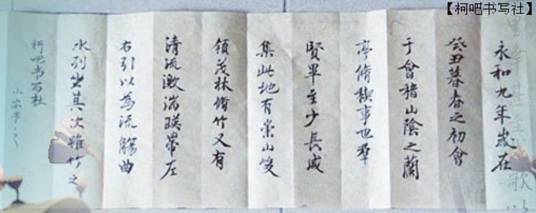 【柯吧书写社】
永和九年歲在
癸丑暮春之初會
于會稽山陰之蘭
亭脩禊事也羣
賢畢至少長咸
集此地有崇山峻
領茂林脩竹又有
清流激湍暎帶左
右引以為流觴曲
水列坐其次雖竹之
柯吧书写社